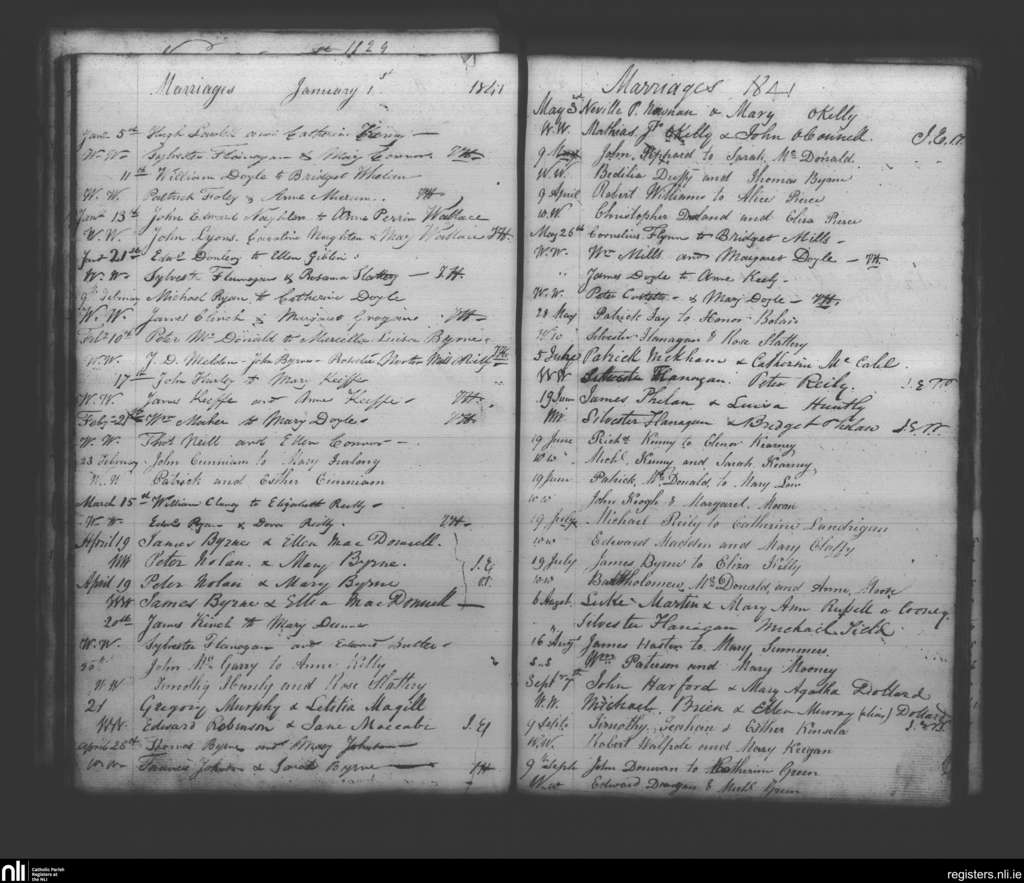 1829
Marriages January 1st 1841
Jany 5th Hugh Lawlor and Catherine
W. W. Sylvester Flanegan & Mary Connor
11th William Doyle to Bridget Whelan
W. W. Patrick Foley & Anne
Jany 13th John Edward Naghten to Anne Perrin Wallace
W. W. John Lyons. Caroline Naghten & Mary Wallace
Jany 21st Edwd Donlevy to Ellen
W. W. Sylvestr Flannegan & Rosanna Slattery
9th Febuary Michael Ryan to Catherine Doyle
W. W. James Clinch & Margaret Grogane
Feby 10th Peter Mc Donald to Marcella Louisa Byrne
W. W. J. D. Meldon - John Byrne -
17th John Hurley to Mary Keiffe
W. W. James Keiffe and Anne Keiffe
Feby 21st Wm Maher to Mary Doyle
W. W. Thos Neill and Ellen Connor
23 Febuary John Cunniam to Mary
W. W. Patrick and Esther Cunniam
March 15th William Clancy to Elizabeth Reilly
W. W. Edwd Ryan & Dora Reilly
April 19 James Byrne & Ellen Mac Donnell.
WW Peter Nolan. & Mary Byrne.
April 19 Peter Nolan & Mary Byrne
WW James Byrne & Ellen MacDonnell
20th James Kinch to Mary Dunne
W. W. Sylvester Flanegan and Edward Butler
20th John Mc Garry to Anne Kelly
W W Timothy Hanly and Rose Slattery
21 Gregory Murphy & Letitia Magill
WW Edward Robinson & Jane Maccabe
April 25th Thomas Byrne and Mary Johnston
W. W. Francis Johnston & Sarah Byrne
Marriages 1841
May 3d Neville P. Newnan & Mary OKelly
W. W. Mathias Js OKelly & John OConnell.
9 May John Sheppard to Sarah Mc Donald
W. W. Bedilia Duffy and Thomas Byrne
9 April Robert Williams to Alice Pierce
W. W. Christopher Doland and Eliza Pierce
May 26th Cornelius Flynn to Bridget Mills
W. W. Wm Mills and Margaret Doyle
" James Doyle to Anne Keely
W. W. Peter & Mary Doyle
28 May Patrick Fay to Honor Bolan
W W Silvester Flanagan & Rose Slattery
5 July Patrick Wickham & Catherine Mc Cabe.
WW Silvester Flanagan. Peter Reily.
19 June James Phelan & Luisa Huntly
WW Silvester Flanagan & Bridget Phelan
19 June Richd Kenny to Elenor Kearney
W W Michl Kenny and Sarah Kearney
19 June Patrick Mc Donald to Mary Law
W W John Keogh & Margaret Moran
19 July Michael Reily to Catherine Landrigan
W W Edward Madden and Mary Claffy
19 July James Byrne to Eliza Kelly
W W Bartholomew McDonald and Anne Moore
6 August Luke Martin & Mary Ann Russell or Cooney
" Silvester Flanagan Michael Kirk
16 Aug James Hastin to Mary Summers
S.S Wm Paterson and Mary Mooney
Sept 7th John Harford & Mary Agatha Dollard
W. W. Michael Brien & Ellen Murray (alias) Dollard
9 Septr Timothy Senhouse & Esther Kinsela
W. W. Robert Walpole and Mary Keegan
9th Septr John Donovan to Catherine Green
W. W Edward Deangan & Michl Green
nli
Catholic Parish
Registers at
the NLI
registers.nli.ie